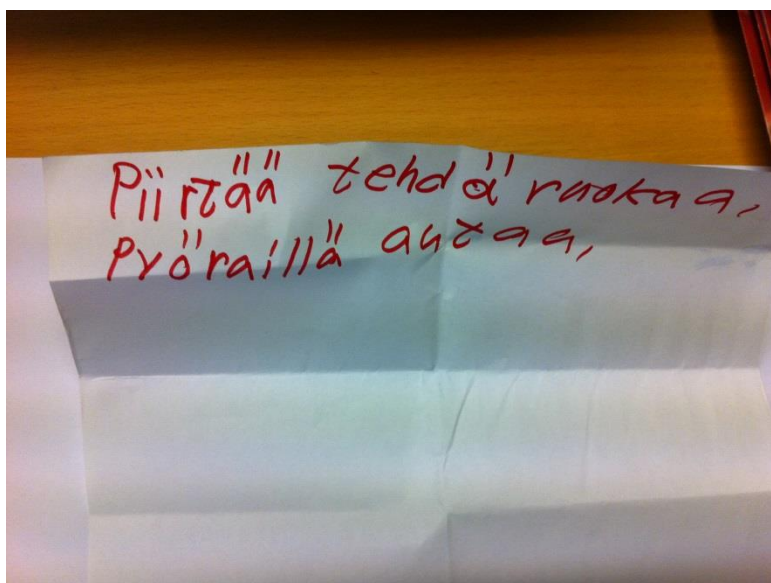 Piirtää tehdä ruokaa,
Pyöraillä autaa,